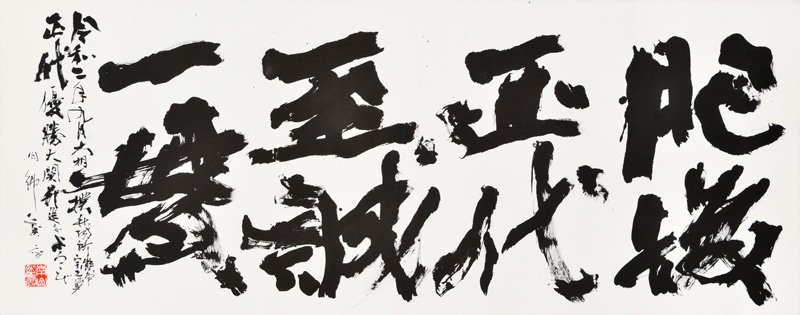 肥後
正代
至誠
一貫
令和二年九月大相撲秋場所
正代優勝大関昇進
同郷